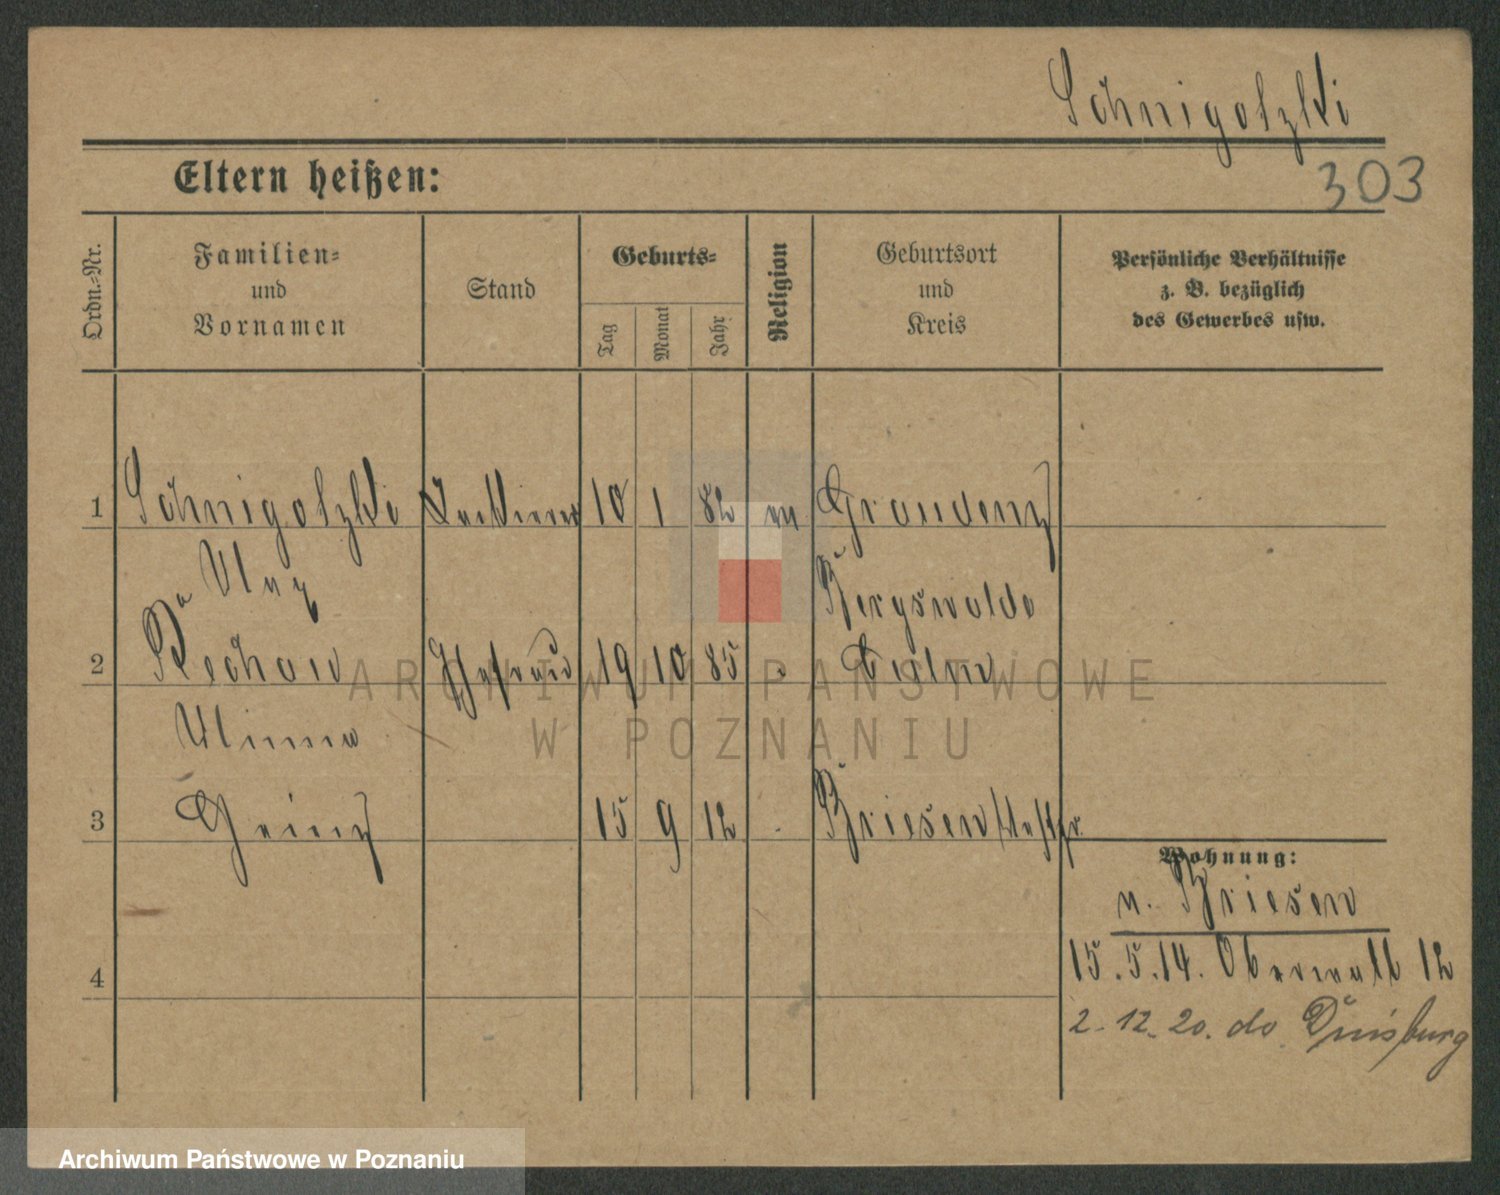 Schnigolzki
303
Eltern heißen:
Ordn.-Nr.
Familien-
und
Vornamen
Stand
Geburts-
Tag
Monat
Jahr
Religion
Geburtsort
und
Kreis
Persönliche Verhältnisse
z. B. bezüglich
des Gewerbes usw.
1 Schnigolzki 10 1 82 Graudenz
Bergswalde
2 Rechau Ehefrau 19 10 85 Culm
3 Heinz 15 9 12 Briesen Westpr.
Wohnung:
n. Briesen
15.5.14. 12
4
2.12.20. do Duisburg
ARCHIWUM PAŃSTWOWE
W POZNANIU
Archiwum Państwowe w Poznaniu